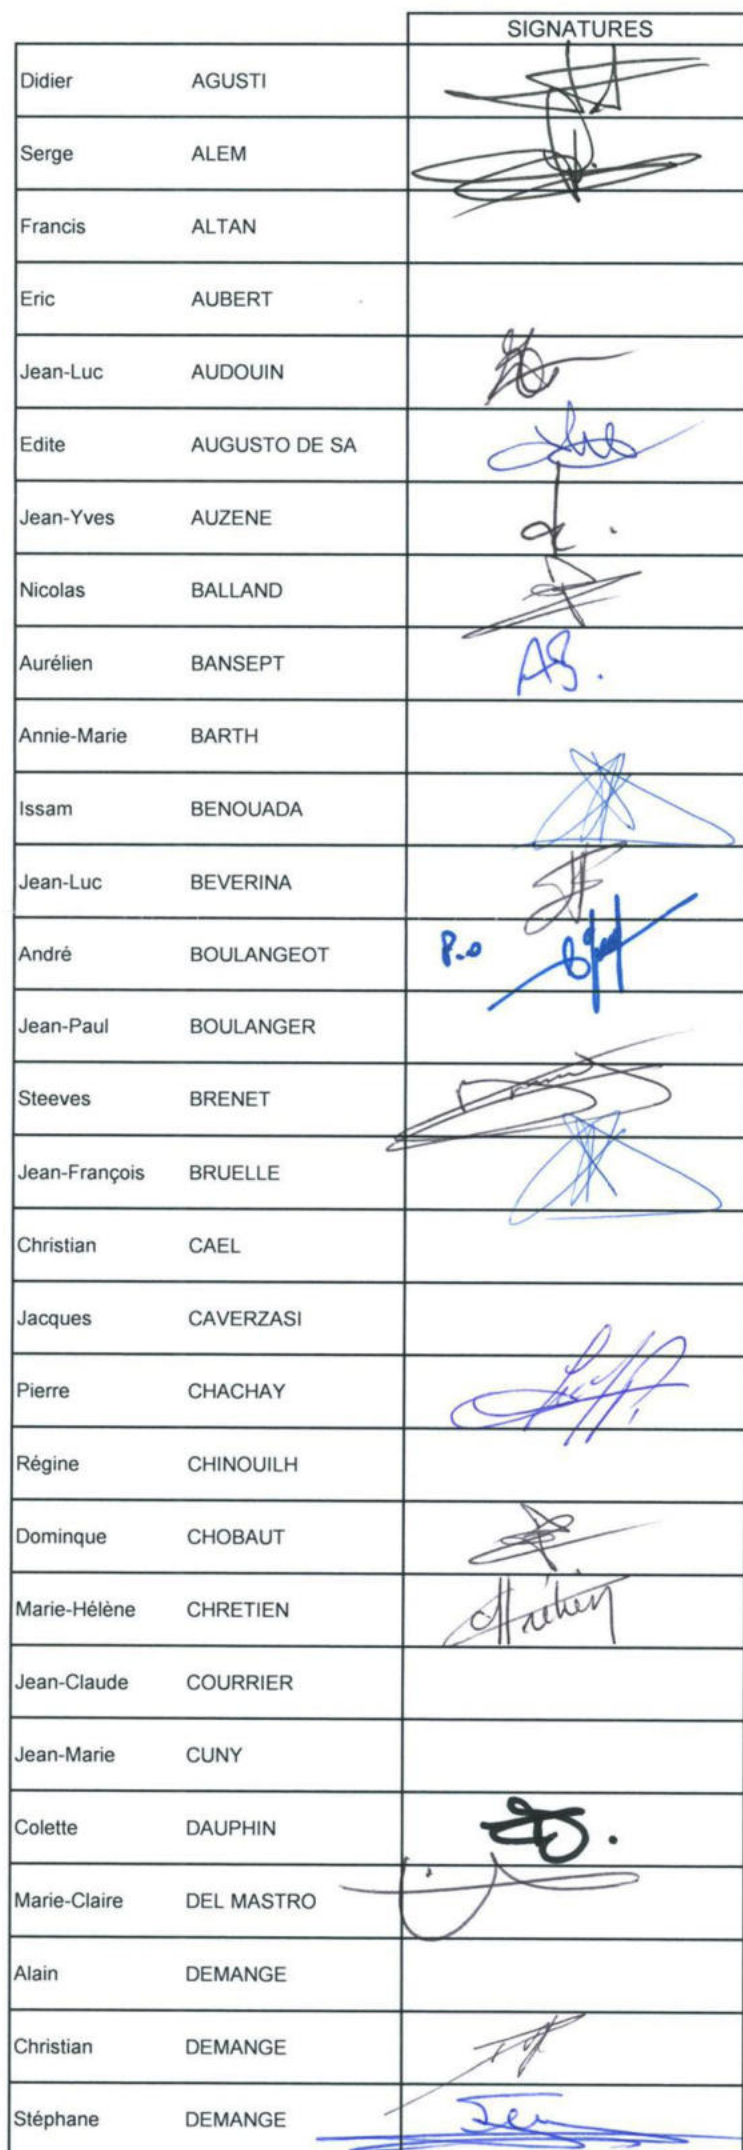 SIGNATURES
Didier AGUSTI
Serge ALEM
Francis ALTAN
Eric AUBERT
Jean-Luc AUDOUIN
Edite AUGUSTO DE SA
Jean-Yves AUZENE
Nicolas BALLAND
Aurélien BANSEPT AB.
Annie-Marie BARTH
Issam BENOUADA
Jean-Luc BEVERINA
André BOULANGEOT P.o
Jean-Paul BOULANGER
Steeves BRENET
Jean-François BRUELLE
Christian CAEL
Jacques CAVERZASI
Pierre CHACHAY
Régine CHINOUILH
Dominque CHOBAUT
Marie-Hélène CHRETIEN
Jean-Claude COURRIER
Jean-Marie CUNY
Colette DAUPHIN
Marie-Claire DEL MASTRO
Alain DEMANGE
Christian DEMANGE
Stéphane DEMANGE